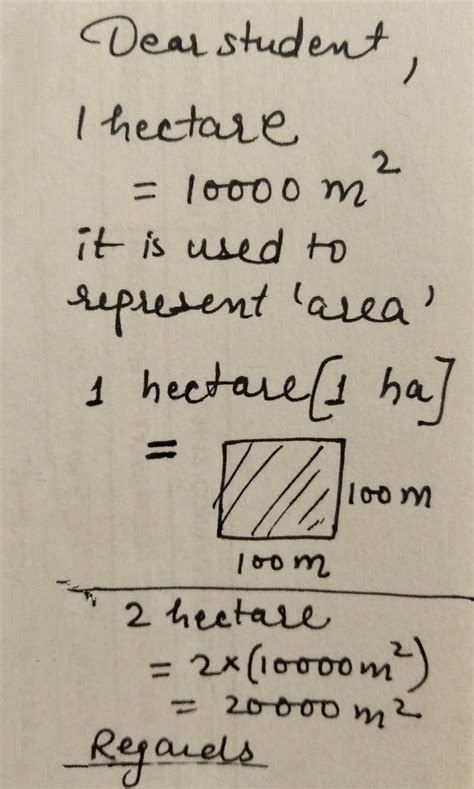 Dear student,
1 hectare
= 10000 m²
it is used to
represent 'area'
1 hectare [1 ha]
=
100 m
100 m
2 hectare
= 2×(10000m²)
= 20000 m²
Regards